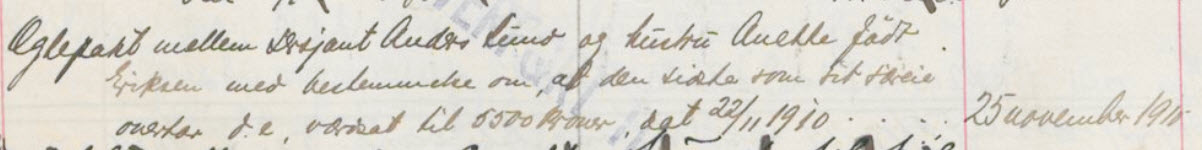 Ægtepakt mellem Sersjant Anders Lund og hustru Anette født
Eriksen med bestemmelse om, at den sidste som sit særeie
overtar d. e., værdsat til 5500 kroner, dat 22/11 1910 . . . . 25 november 1910